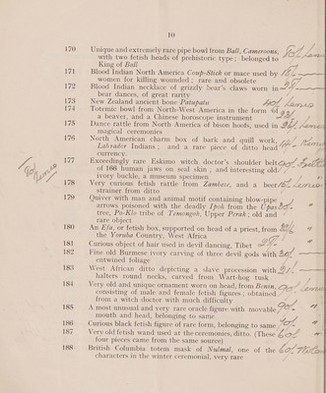 10
170 Unique and extremely rare pipe bowl from Bali, Cameroons,
with two fetish heads of prehistoric type; belonged to
King of Bali
171 Blood Indian North America Coup-Stick or mace used by
women for killing wounded; rare and obsolete
172 Blood Indian necklet of grizzly bear's claws worn in
bear dances, of great rarity
173 New Zealand ancient bone Patupatu
174 Totemic bowl from North-West America in the form of
a beaver, and a Chinese horoscope instrument
175 Dance rattle from North America of bison hoofs, used in
magical ceremonies
176 North American charm box of bark and quill work,
Labrador Indians; and a rare piece of ditto head
currency.
177 Exceedingly rare Eskimo witch doctor's shoulder belt
of 166 human jaws on seal skin; and interesting old
ivory buckle, a museum specimen
178 Very curious fetish rattle from Zambase, and a beer
strainer from ditto
179 Quiver with man and animal motif containing blow-pipe
arrows poisoned with the deadly Ipoh from the Upas
tree, Po-Klo tribe of Temongoh, Upper Perak; old and
rare object
180 An Efa, or fetish box, supported on head of a priest, from
the Yoruba Country, West Africa
181 Curious object of hair used in devil dancing, Tibet
182 Fine old Burmese ivory carving of three devil gods with
entwined foliage
183 West African ditto depicting a slave procession with
halters round necks, carved from Wart-hog tusk
184 Very old and unique ornament worn on head, from Benin,
consisting of male and female fetish figures; obtained
from a witch doctor with much difficulty
185 A most unusual and very rare oracle figure with movable
mouth and head, belonging to same
186 Curious black fetish figure of rare form, belonging to same
187 Very old fetish wand used at the ceremonies, ditto. (These
four pieces came from the same source)
188 British Columbia totem mask of Nulmal, one of the
characters in the winter ceremonial, very rare